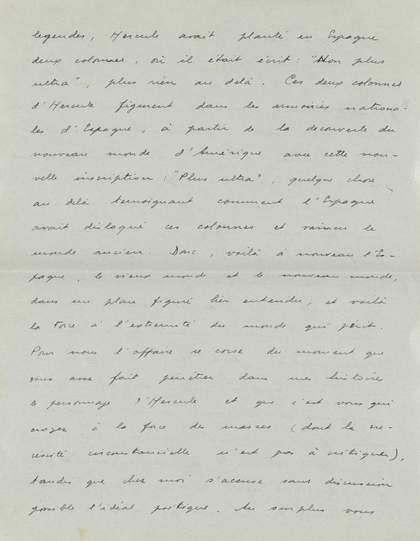 legendes, Hercule avait planté en Espagne
deux colonnes, où il était écrit: "Non plus
ultra", plus rien au delà. Ces deux colonnes
d'Hercule figurent dans les armoiries nationa-
les d'Espagne, à partir de la découverte du
nouveau monde d'Amérique avec cette nou-
velle inscription: "Plus ultra", quelque chose
au delà temoignant comment l'Espagne
avait disloqué ces colonnes et vaincu le
monde ancien. Donc, voilà à nouveau l'Es-
pagne, le vieux monde et le nouveau monde,
dans un plan figuré bien entendu, et voilà
la Force à l'extremité du monde qui périt.
Pour nous l'affaire se corse du moment que
vous avez fait penétrer dans mes histoires
le personnage d'Hercule et que c'est vous qui
croyez à la force des masses (dont la né-
cessité circonstancielle n'est pas à critiquer),
tandis que chez moi s'accuse sans discussion
possible l'idéal poétique. Au surplus vous